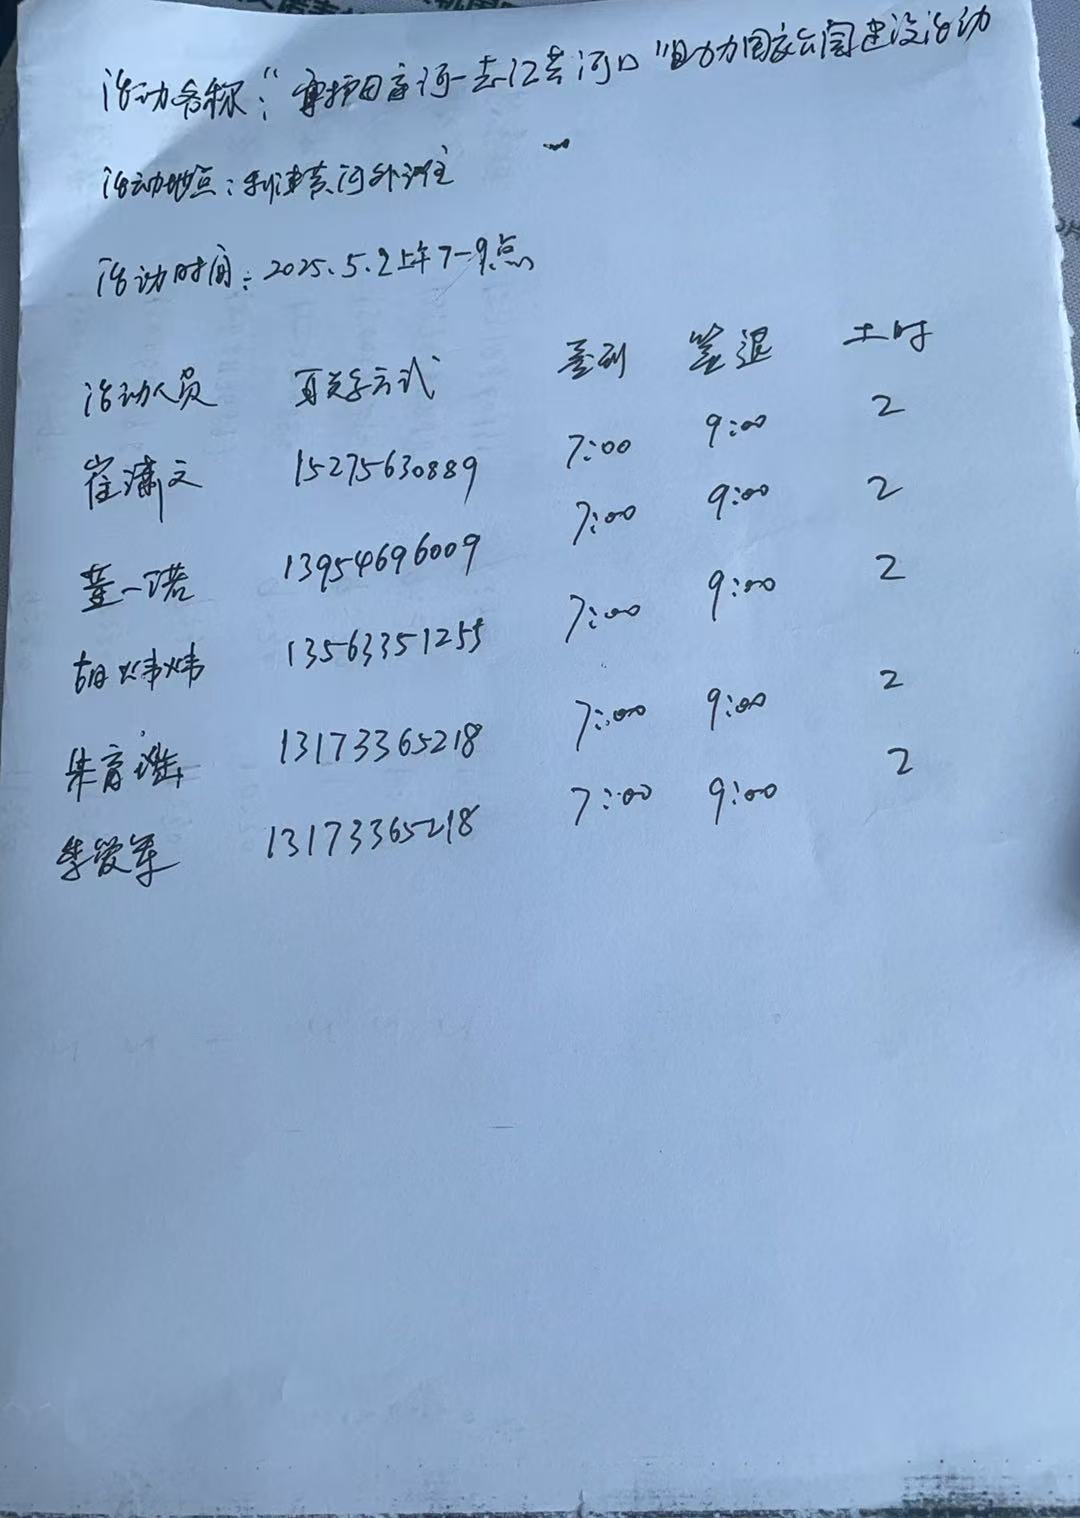 活动名称：“守护母亲河一志汇黄河口”助力国家公园建设活动
活动地点：利津黄河外滩
活动时间：2025.5.2上午7-9点
活动人员 联系方式 签到 签退 工时
崔潇文 15275630889 7:00 9:00 2
董一诺 13954696009 7:00 9:00 2
胡炜炜 13563351255 7:00 9:00 2
朱育 13173365218 7:00 9:00 2
李爱军 13173365218 7:00 9:00 2